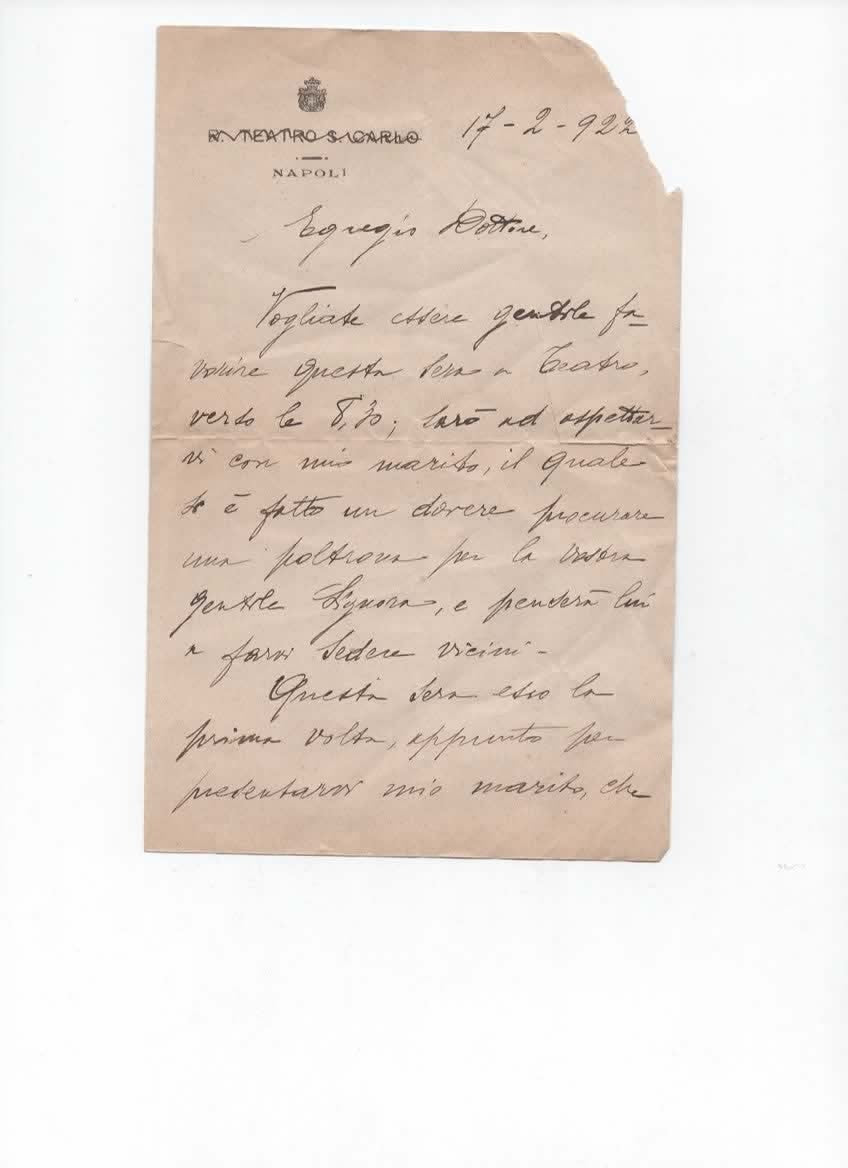 R. TEATRO S. CARLO
NAPOLI
17-2-922
Egregio Dottore,
Vogliate essere gentile fa-
vorire questa sera a Teatro,
verso le 8,30; sarò ad aspettar-
vi con mio marito, il quale
si è fatto un dovere procurare
una poltrona per la vostra
gentile Signora, e penserà lui
a farvi sedere vicini -
Questa sera esco la
prima volta, appunto per
presentarvi mio marito, che